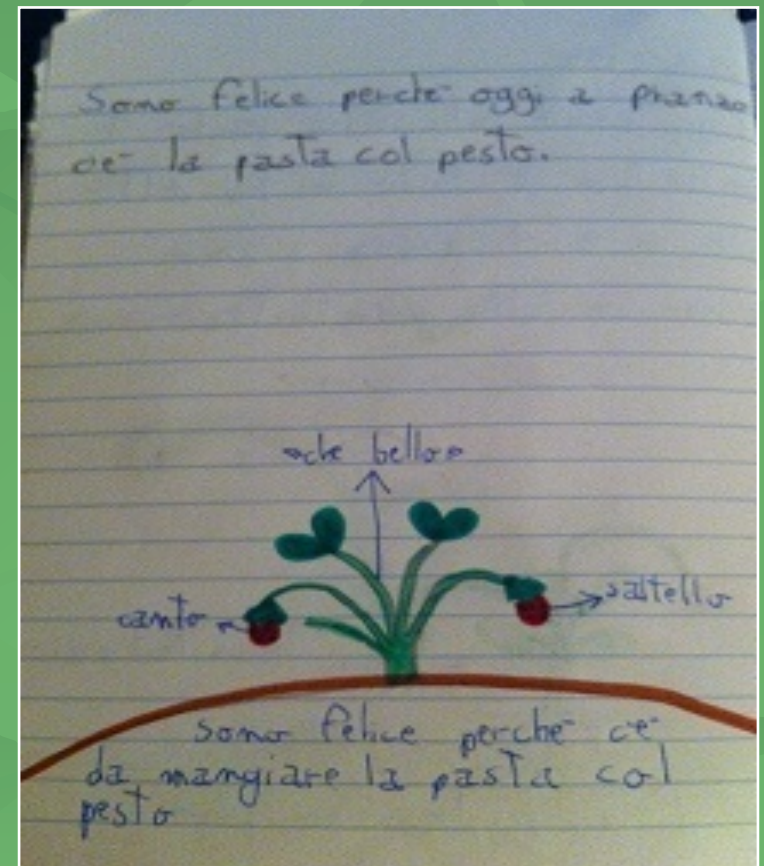 Sono felice perche oggi a pranzo
ce la pasta col pesto.
"che bello"
canto
saltello
sono felice perche ce
da mangiare la pasta col
pesto